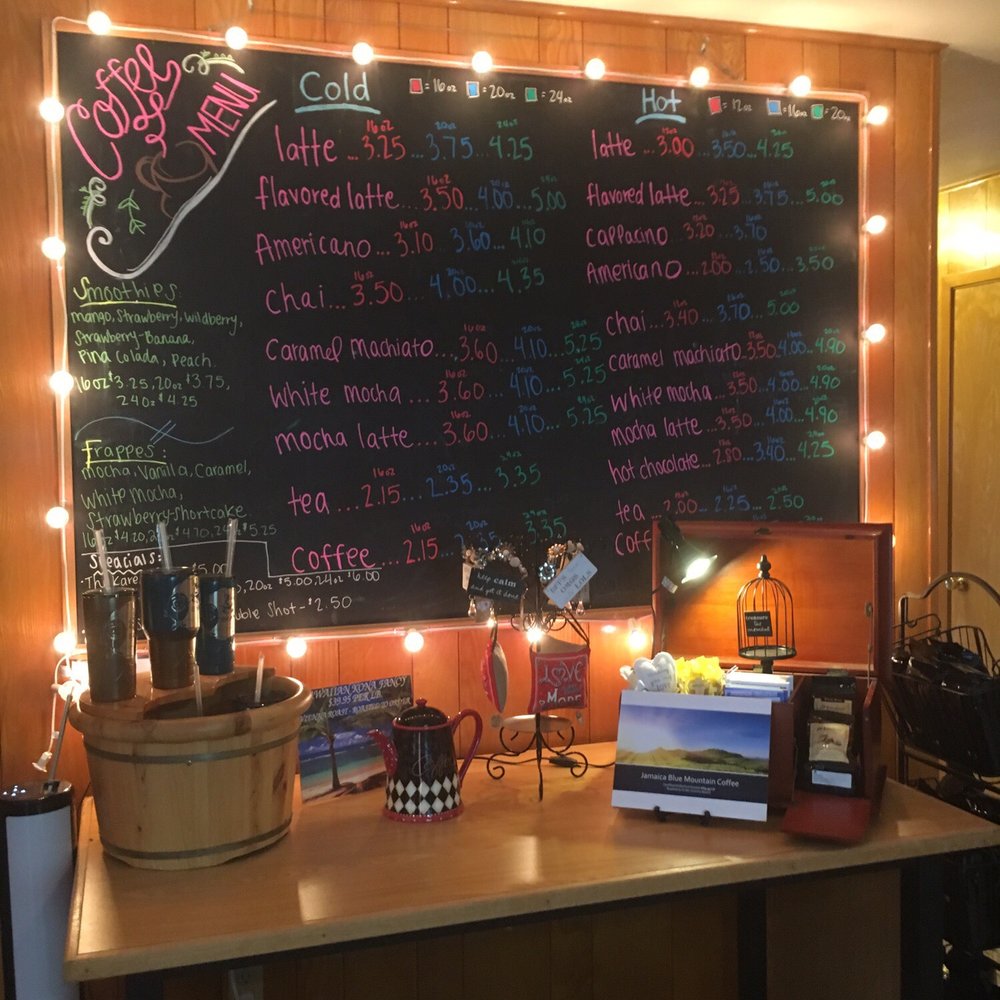 Coffee
MENU
Smoothies:
mango, Strawberry, wildberry,
Strawberry-Banana,
Pina Colada, Peach
16oz $3.25, 20oz $3.75,
24oz $4.25
Frappes:
mocha, Vanilla, Caramel,
White Mocha,
Strawberry-Shortcake
16oz $4.20, 20oz $4.70, 24oz $5.25
Specials:
The Kare
20oz $5.00, 24oz $6.00
Shot- $2.50
Cold
=16oz =20oz =24oz
16oz 20oz 24oz
latte ...3.25 ...3.75 ...4.25
flavored latte ...3.50 ...4.00 ...5.00
Americano ...3.10 ...3.60 ...4.10
Chai ...3.50 ...4.00 ...4.35
Caramel Machiato ...3.60 ...4.10 ...5.25
White mocha ...3.60 ...4.10 ...5.25
mocha latte ...3.60 ...4.10 ...5.25
tea ...2.15 ...2.35 ...3.35
Coffee ...2.15 ...2.35 ...3.35
Hot
=12oz =16oz =20oz
latte ...3.00 ...3.50 ...4.25
flavored latte ...3.25 ...3.75 ...5.00
Cappacino ...3.20 ...3.70
Americano ...2.00 ...2.50 ...3.50
chai ...3.40 ...3.70 ...5.00
caramel machiato ...3.50 ...4.00 ...4.90
White mocha ...3.50 ...4.00 ...4.90
mocha latte ...3.50 ...4.00 ...4.90
hot chocolate ...2.80 ...3.40 ...4.25
tea ...2.00 ...2.25 ...2.50
Coff
keep calm
and get it done
LOVE
MORE
treasure
the
moment
HAWAIIAN KONA FANCY
PER LB.
VIENNA ROAST - ROASTED TO ORDER
Jamaica Blue Mountain Coffee